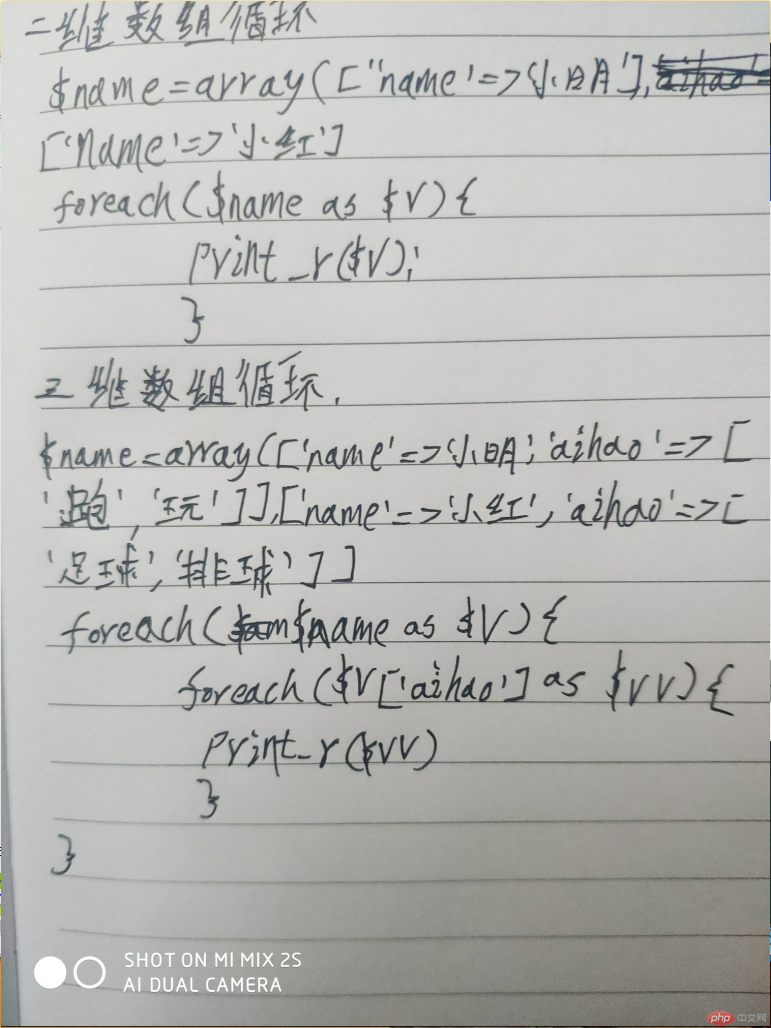 二维数组循环
$name=array(["name'=>'小明'],
['name'=>'小红']
foreach($name as $V){
print_r($V);
}
三维数组循环.
$name=array(['name'=>'小明','aihao'=>[
'跑','玩']],['name'=>'小红','aihao'=>[
'足球','排球']]
foreach($name as $V){
foreach($V['aihao'] as $VV){
print_r($VV)
}
}
SHOT ON MI MIX 2S
AI DUAL CAMERA
php 中文网